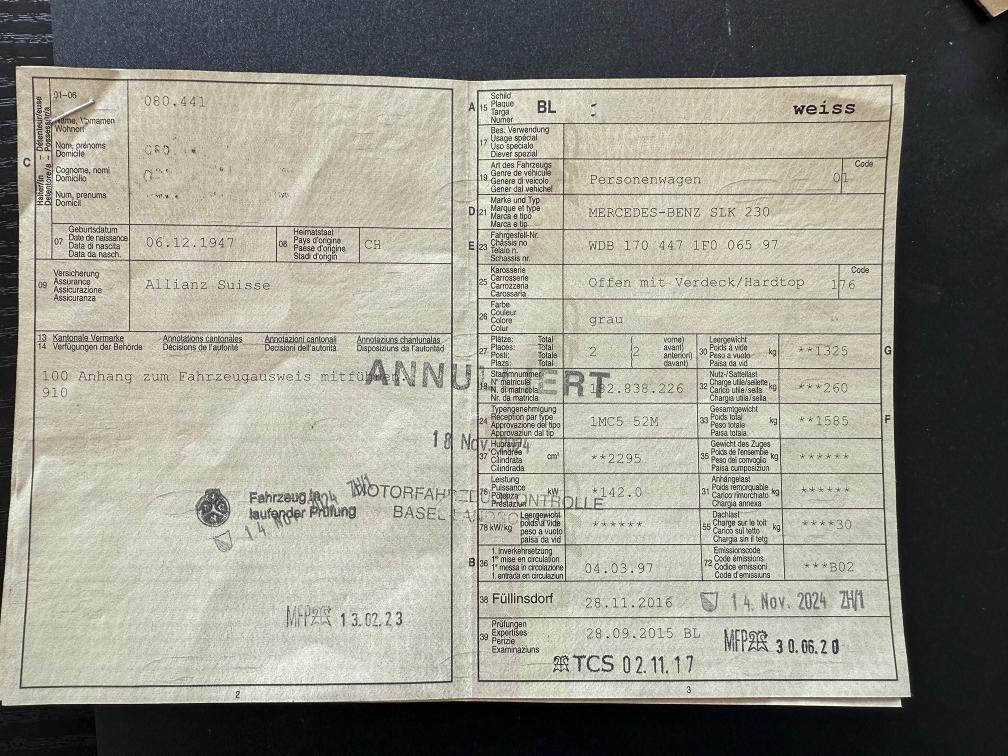 01-06
080.441
Name, Vornamen
Wohnort
Nom, prénoms
Domicile
Cognome, nomi
Domicilio
Num, prenums
Domicil
C
Halter/in – Détenteur/euse
Detentore/a – Possessur/a
07
Geburtsdatum
Date de naissance
Data di nascita
Data da nasch.
06.12.1947
08
Heimatstaat
Pays d'origine
Paese d'origine
Stadi d'origin
CH
09
Versicherung
Assurance
Assicurazione
Assicuranza
Allianz Suisse
13 Kantonale Vermerke Annotations cantonales Annotazioni cantonali Annotaziuns chantunalas
14 Verfügungen der Behörde Décisions de l'autorité Decisioni dell'autorità Disposiziuns da l'autoritad
100 Anhang zum Fahrzeugausweis mitführen.
910
ANNULLIERT
18 Nov. 2024
MOTORFAHRZEUGKONTROLLE
BASEL-LANDSCHAFT
Fahrzeug in
laufender Prüfung
14 Nov. 2024 ZH/1
MFP 13.02.23
2
A 15
Schild
Plaque
Targa
Numer
BL
weiss
17
Bes. Verwendung
Usage spécial
Uso speciale
Diever spezial
19
Art des Fahrzeugs
Genre de véhicule
Genere di veicolo
Gener dal vehichel
Personenwagen
Code
01
D 21
Marke und Typ
Marque et type
Marca e tipo
Marca e tip
MERCEDES-BENZ SLK 230
E 23
Fahrgestell-Nr.
Châssis no
Telaio n.
Schassis nr.
WDB 170 447 1F0 065 97
25
Karosserie
Carrosserie
Carrozzeria
Carossaria
Offen mit Verdeck/Hardtop
Code
176
26
Farbe
Couleur
Colore
Colur
grau
27
Plätze: Total (vorne)
Places: Total avant)
Posti: Totale anteriori)
Plazs: Total davant)
2 (2
30
Leergewicht
Poids à vide
Peso a vuoto
Paisa da vid
kg
**1325
G
18
Stammnummer
N° matricule
N. di matricola
Nr. da matricla
182.838.226
32
Nutz-/Sattellast
Charge utile/sellette
Carico utile/sella
Chargia utila/sella
kg
***260
24
Typengenehmigung
Réception par type
Approvazione del tipo
Approvaziun dal tip
1MC5 52M
33
Gesamtgewicht
Poids total
Peso totale
Paisa totala
kg
**1585
F
37
Hubraum
Cylindrée
Cilindrata
Cilindrada
cm³
**2295
35
Gewicht des Zuges
Poids de l'ensemble
Peso del convoglio
Paisa cumposiziun
kg
******
76
Leistung
Puissance
Potenza
Prestaziun
kW
*142.0
31
Anhängelast
Poids remorquable
Carico rimorchiato
Chargia annexa
kg
******
78 kW/kg
Leergewicht
poids à vide
peso a vuoto
paisa da vid
******
55
Dachlast
Charge sur le toit
Carico sul tetto
Chargia sin il tetg
kg
****30
B 36
1. Inverkehrsetzung
1re mise en circulation
1a messa in circolazione
1. entrada en circulaziun
04.03.97
72
Emissionscode
Code émissions
Codice emissioni
Code d'emissiuns
***B02
38 Füllinsdorf
28.11.2016
14. Nov. 2024 ZH/1
39
Prüfungen
Expertises
Perizie
Examinaziuns
28.09.2015 BL
MFP 30.06.20
TCS 02.11.17
3